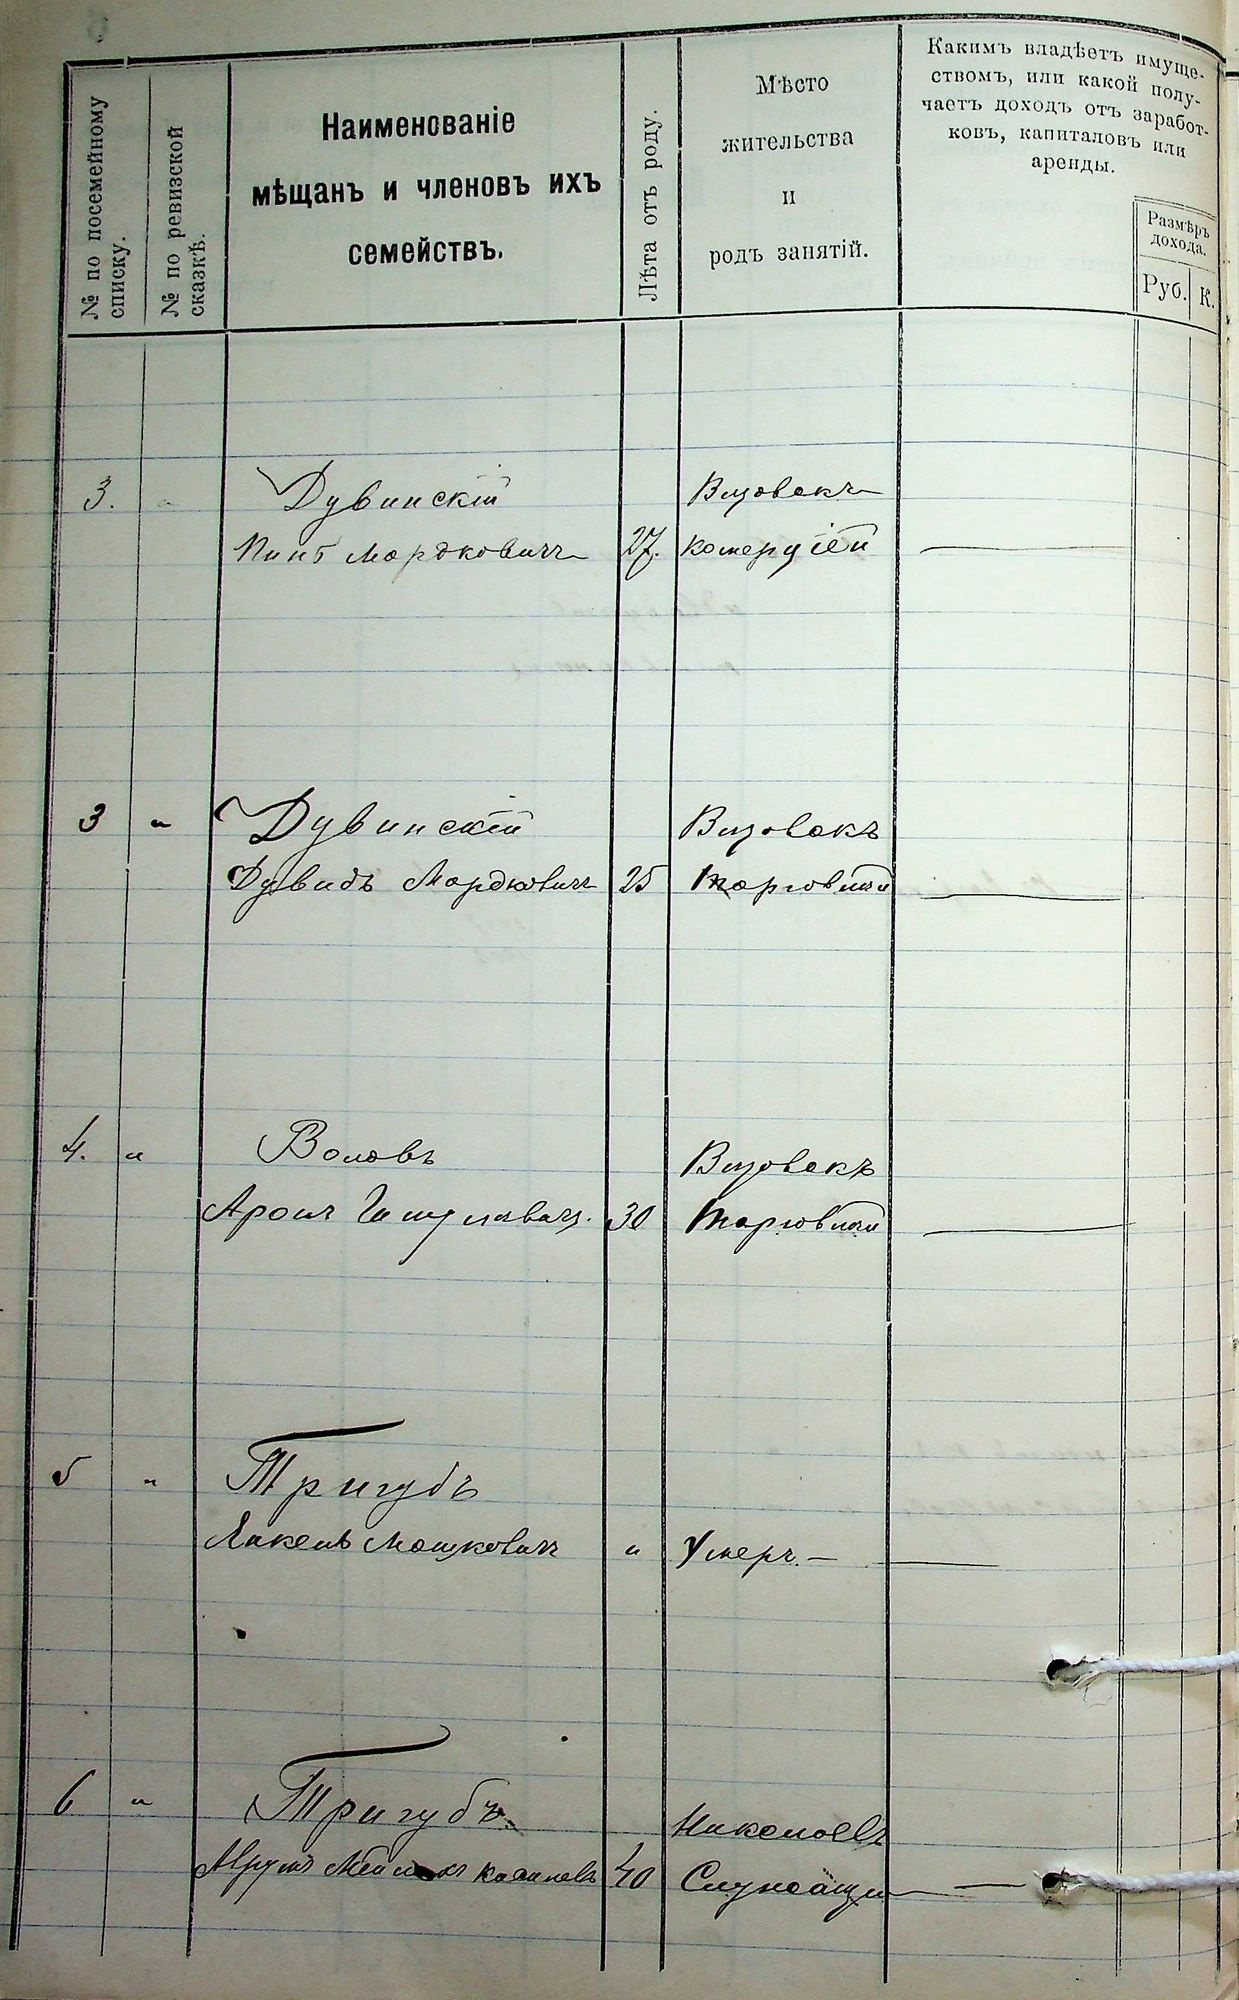 № по посемейному
списку.
№ по ревизской
сказкѣ.
Наименованіе
мѣщанъ и членовъ ихъ
семействъ.
Лѣта отъ роду.
Мѣсто
жительства
и
родъ занятій.
Какимъ владѣетъ имуще-
ствомъ, или какой полу-
чаетъ доходъ отъ заработ-
ковъ, капиталовъ или
аренды.
Размѣръ
дохода.
Руб. К.
3. Дувинскій
Мордковичъ 27.
3 " Дувинскій
Дувидъ Мордковичъ 25 торговлей
4. " Воловъ
Аронъ 30 торговлей
5 " Тригубъ
Мошковичъ " Умеръ. —
6 " Тригубъ Николаевъ
Аврумъ 40 —